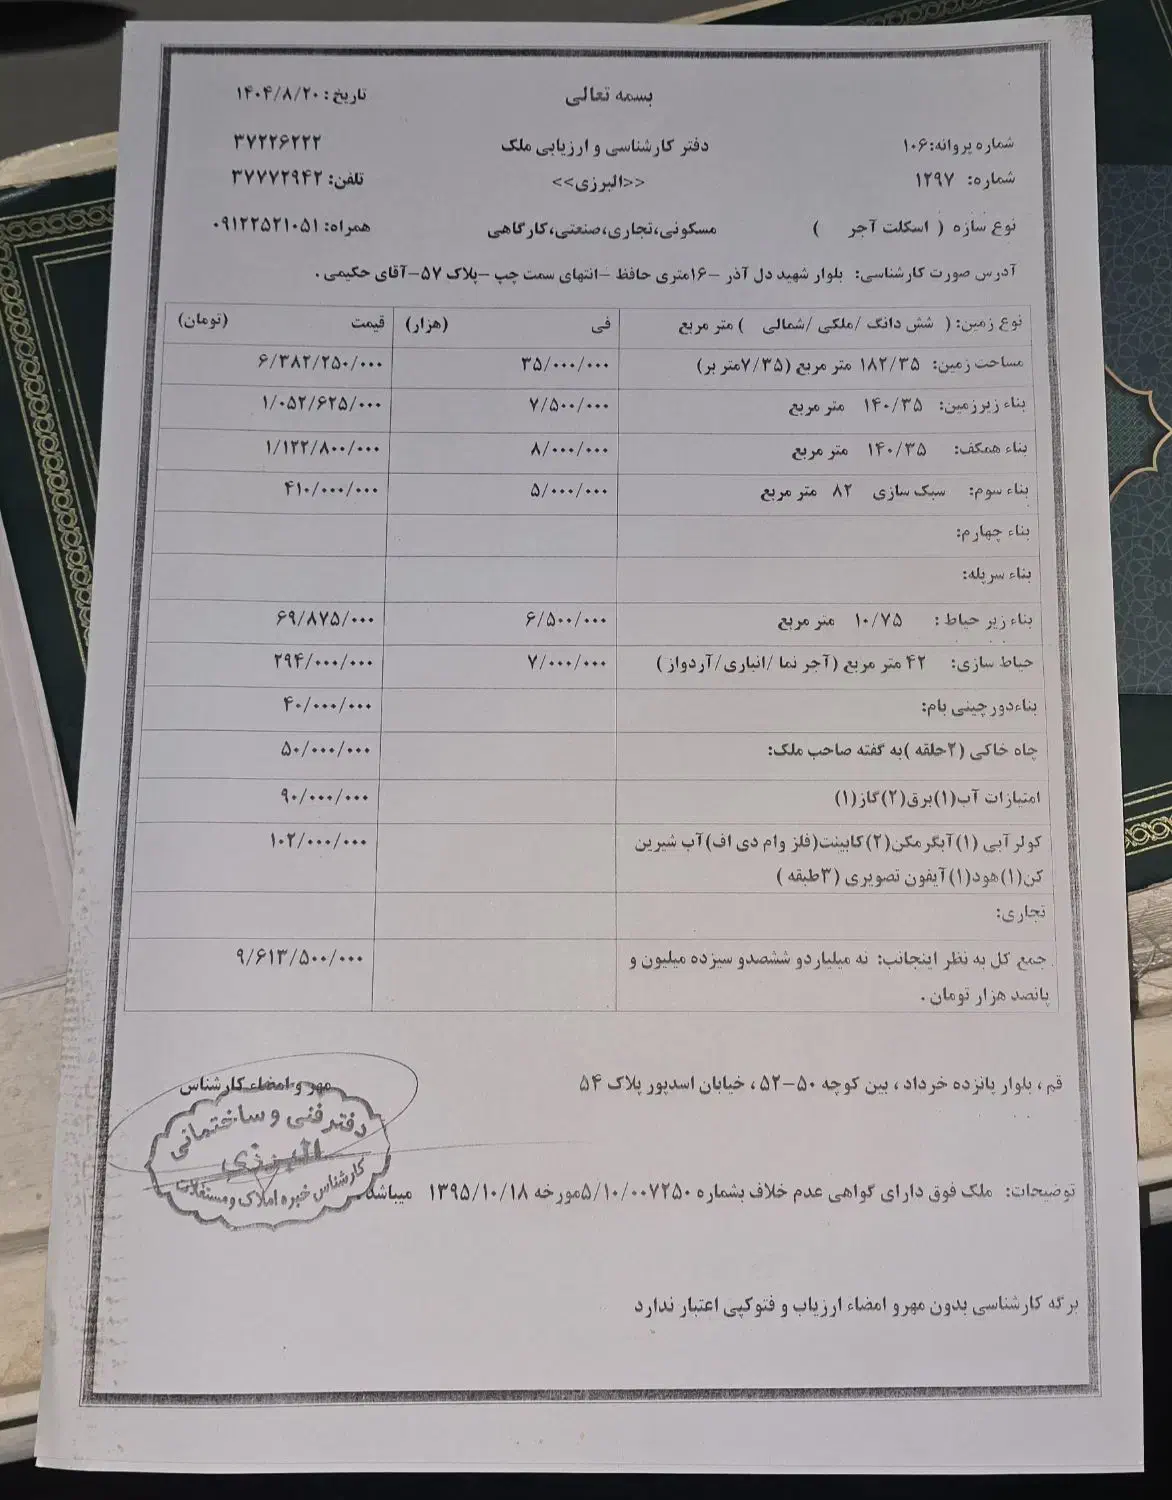 بسمه تعالی
تاریخ: ۱۴۰۴/۸/۲۰
شماره پروانه: ۱۰۶
دفتر کارشناسی و ارزیابی ملک
۳۷۲۲۶۲۲۲
شماره: ۱۲۹۷
<<البرزی>>
تلفن: ۳۷۷۷۲۹۴۲
نوع سازه ( اسکلت آجر )
مسکونی،تجاری،صنعتی،کارگاهی
همراه: ۰۹۱۲۲۵۲۱۰۵۱
آدرس صورت کارشناسی: بلوار شهید دل آذر –۱۶متری حافظ –انتهای سمت چپ –پلاک ۵۷–آقای حکیمی .
نوع زمین: ( شش دانگ /ملکی /شمالی ) متر مربع فی (هزار) قیمت (تومان)
مساحت زمین: ۱۸۲/۳۵ متر مربع (۷/۳۵متر بر) ۳۵/۰۰۰/۰۰۰ ۶/۳۸۲/۲۵۰/۰۰۰
بناء زیرزمین: ۱۴۰/۳۵ متر مربع ۷/۵۰۰/۰۰۰ ۱/۰۵۲/۶۲۵/۰۰۰
بناء همکف: ۱۴۰/۳۵ متر مربع ۸/۰۰۰/۰۰۰ ۱/۱۲۲/۸۰۰/۰۰۰
بناء سوم: سبک سازی ۸۲ متر مربع ۵/۰۰۰/۰۰۰ ۴۱۰/۰۰۰/۰۰۰
بناء چهارم:
بناء سرپله:
بناء زیر حیاط : ۱۰/۷۵ متر مربع ۶/۵۰۰/۰۰۰ ۶۹/۸۷۵/۰۰۰
حیاط سازی: ۴۲ متر مربع (آجر نما /انباری/آردواز ) ۷/۰۰۰/۰۰۰ ۲۹۴/۰۰۰/۰۰۰
بناءدورچینی بام: ۴۰/۰۰۰/۰۰۰
چاه خاکی (۲حلقه )به گفته صاحب ملک: ۵۰/۰۰۰/۰۰۰
امتیازات آب(۱)برق(۲)گاز(۱) ۹۰/۰۰۰/۰۰۰
کولر آبی (۱)آبگرمکن(۲)کابینت(فلز وام دی اف)آب شیرین ۱۰۲/۰۰۰/۰۰۰
کن(۱)هود(۱)آیفون تصویری (۳طبقه )
تجاری:
جمع کل به نظر اینجانب: نه میلیاردو ششصدو سیزده میلیون و ۹/۶۱۳/۵۰۰/۰۰۰
پانصد هزار تومان .
قم ، بلوار پانزده خرداد ، بین کوچه ۵۰–۵۲ ، خیابان اسدپور پلاک ۵۴
مهر و امضاء کارشناس
دفتر فنی و ساختمانی
البرزی
کارشناس خبره املاک و مستغلات
توضیحات: ملک فوق دارای گواهی عدم خلاف بشماره ۵/۱۰/۰۰۷۲۵۰مورخه ۱۳۹۵/۱۰/۱۸ میباشد
برگه کارشناسی بدون مهرو امضاء ارزیاب و فتوکپی اعتبار ندارد